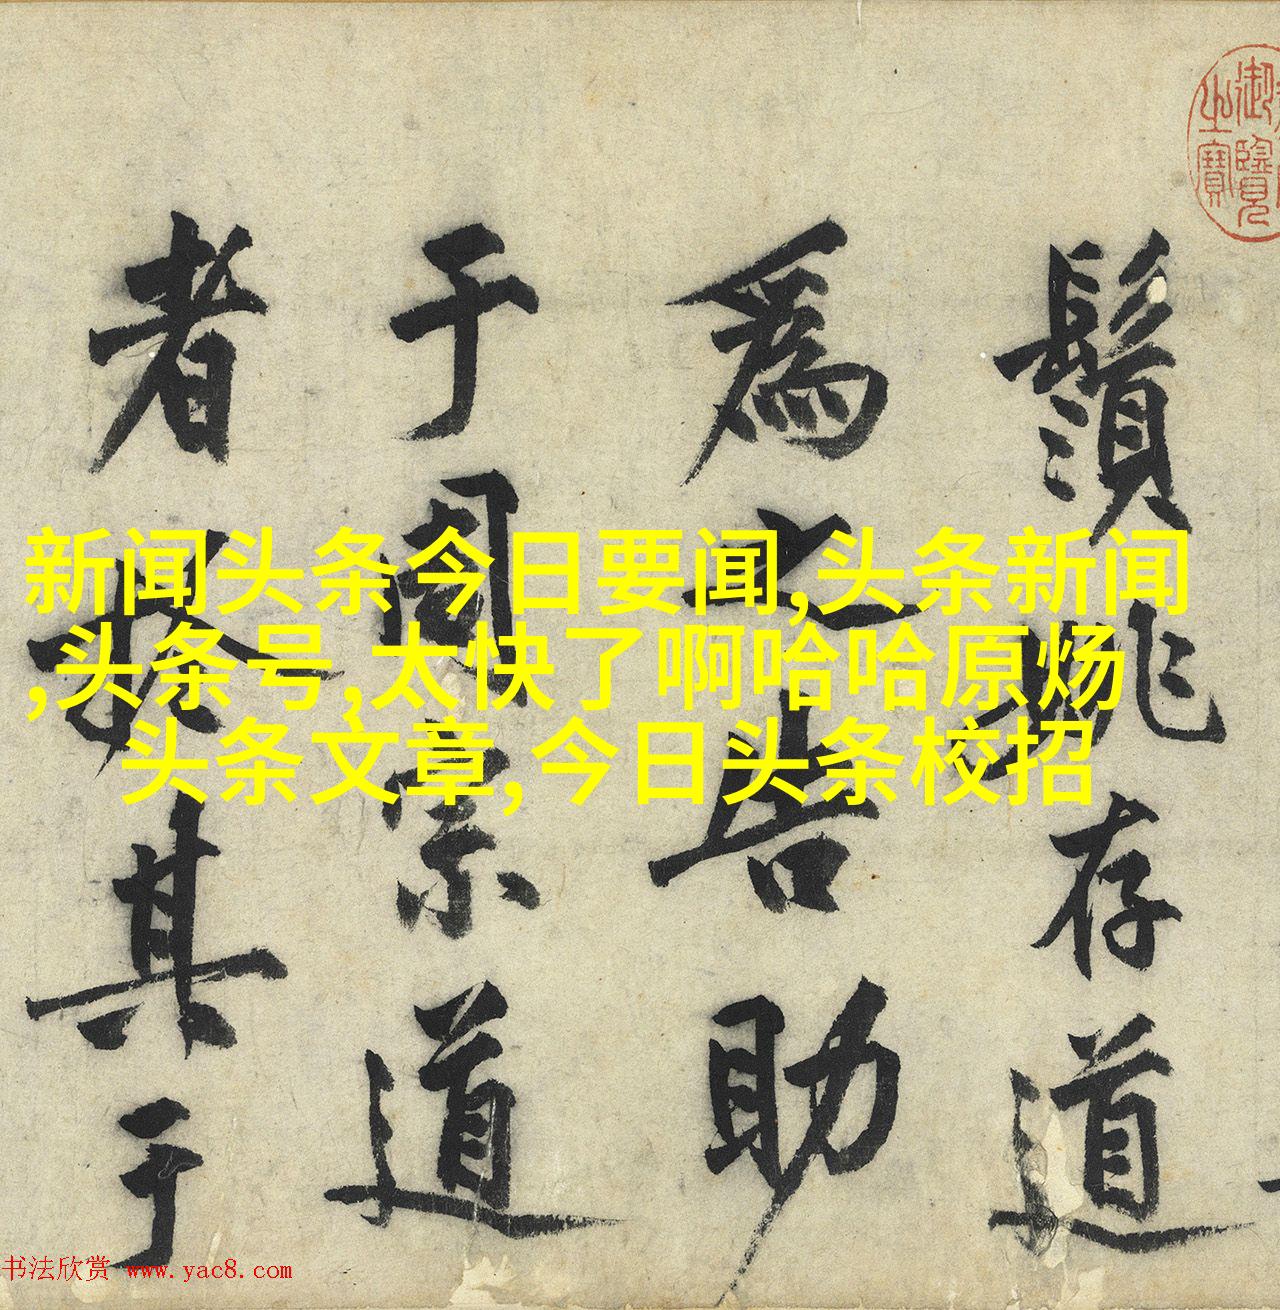 御覽
之寶
鬚 存道
為之告助
于周宗道
者 其于
新闻头条今日要闻,头条新闻
,头条号,太快了啊哈哈原炀
头条文章,今日头条校招
书法欣赏 www.yac8.com